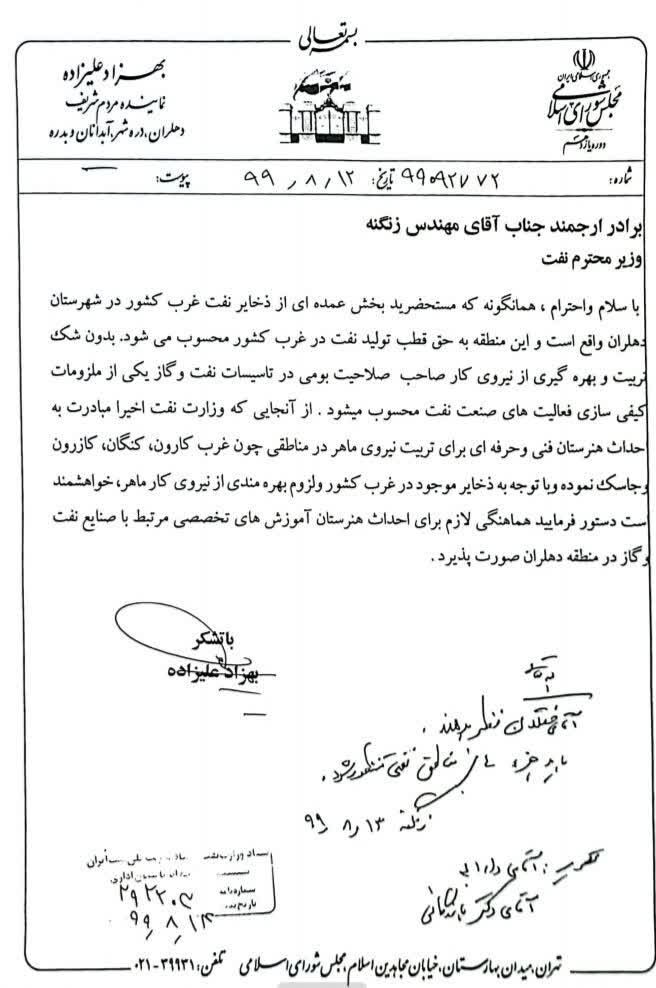 بسمه تعالی
جمهوری اسلامی ایران
مجلس شورای اسلامی
دوره یازدهم
بهزاد علیزاده
نماینده مردم شریف
دهلران، دره شهر، آبدانان و بدره
شماره: ۹۹۰۹۲۷۷۲ تاریخ: ۹۹/۸/۱۲ پیوست: —
برادر ارجمند جناب آقای مهندس زنگنه
وزیر محترم نفت
با سلام واحترام ، همانگونه که مستحضرید بخش عمده ای از ذخایر نفت غرب کشور در شهرستان
دهلران واقع است و این منطقه به حق قطب تولید نفت در غرب کشور محسوب می شود. بدون شک
تربیت و بهره گیری از نیروی کار صاحب صلاحیت بومی در تاسیسات نفت وگاز یکی از ملزومات
کیفی سازی فعالیت های صنعت نفت محسوب میشود . از آنجایی که وزارت نفت اخیرا مبادرت به
احداث هنرستان فنی وحرفه ای برای تربیت نیروی ماهر در مناطقی چون غرب کارون، کنگان، کازرون
وجاسک نموده وبا توجه به ذخایر موجود در غرب کشور ولزوم بهره مندی از نیروی کار ماهر، خواهشمند
است دستور فرمایید هماهنگی لازم برای احداث هنرستان آموزش های تخصصی مرتبط با صنایع نفت
وگاز در منطقه دهلران صورت پذیرد.
باتشکر
بهزاد علیزاده
آقای نظر بدهند.
باید جزء مناطق نفتی منظور شود.
زنگنه ۹۹/۸/۱۳
آقای دکتر
شماره نامه ۲۹۲۲۰۳
تاریخ ۹۹/۸/۱۳
تهران، میدان بهارستان، خیابان مجاهدین اسلام، مجلس شورای اسلامی تلفن: ۳۹۹۳۱-۰۲۱